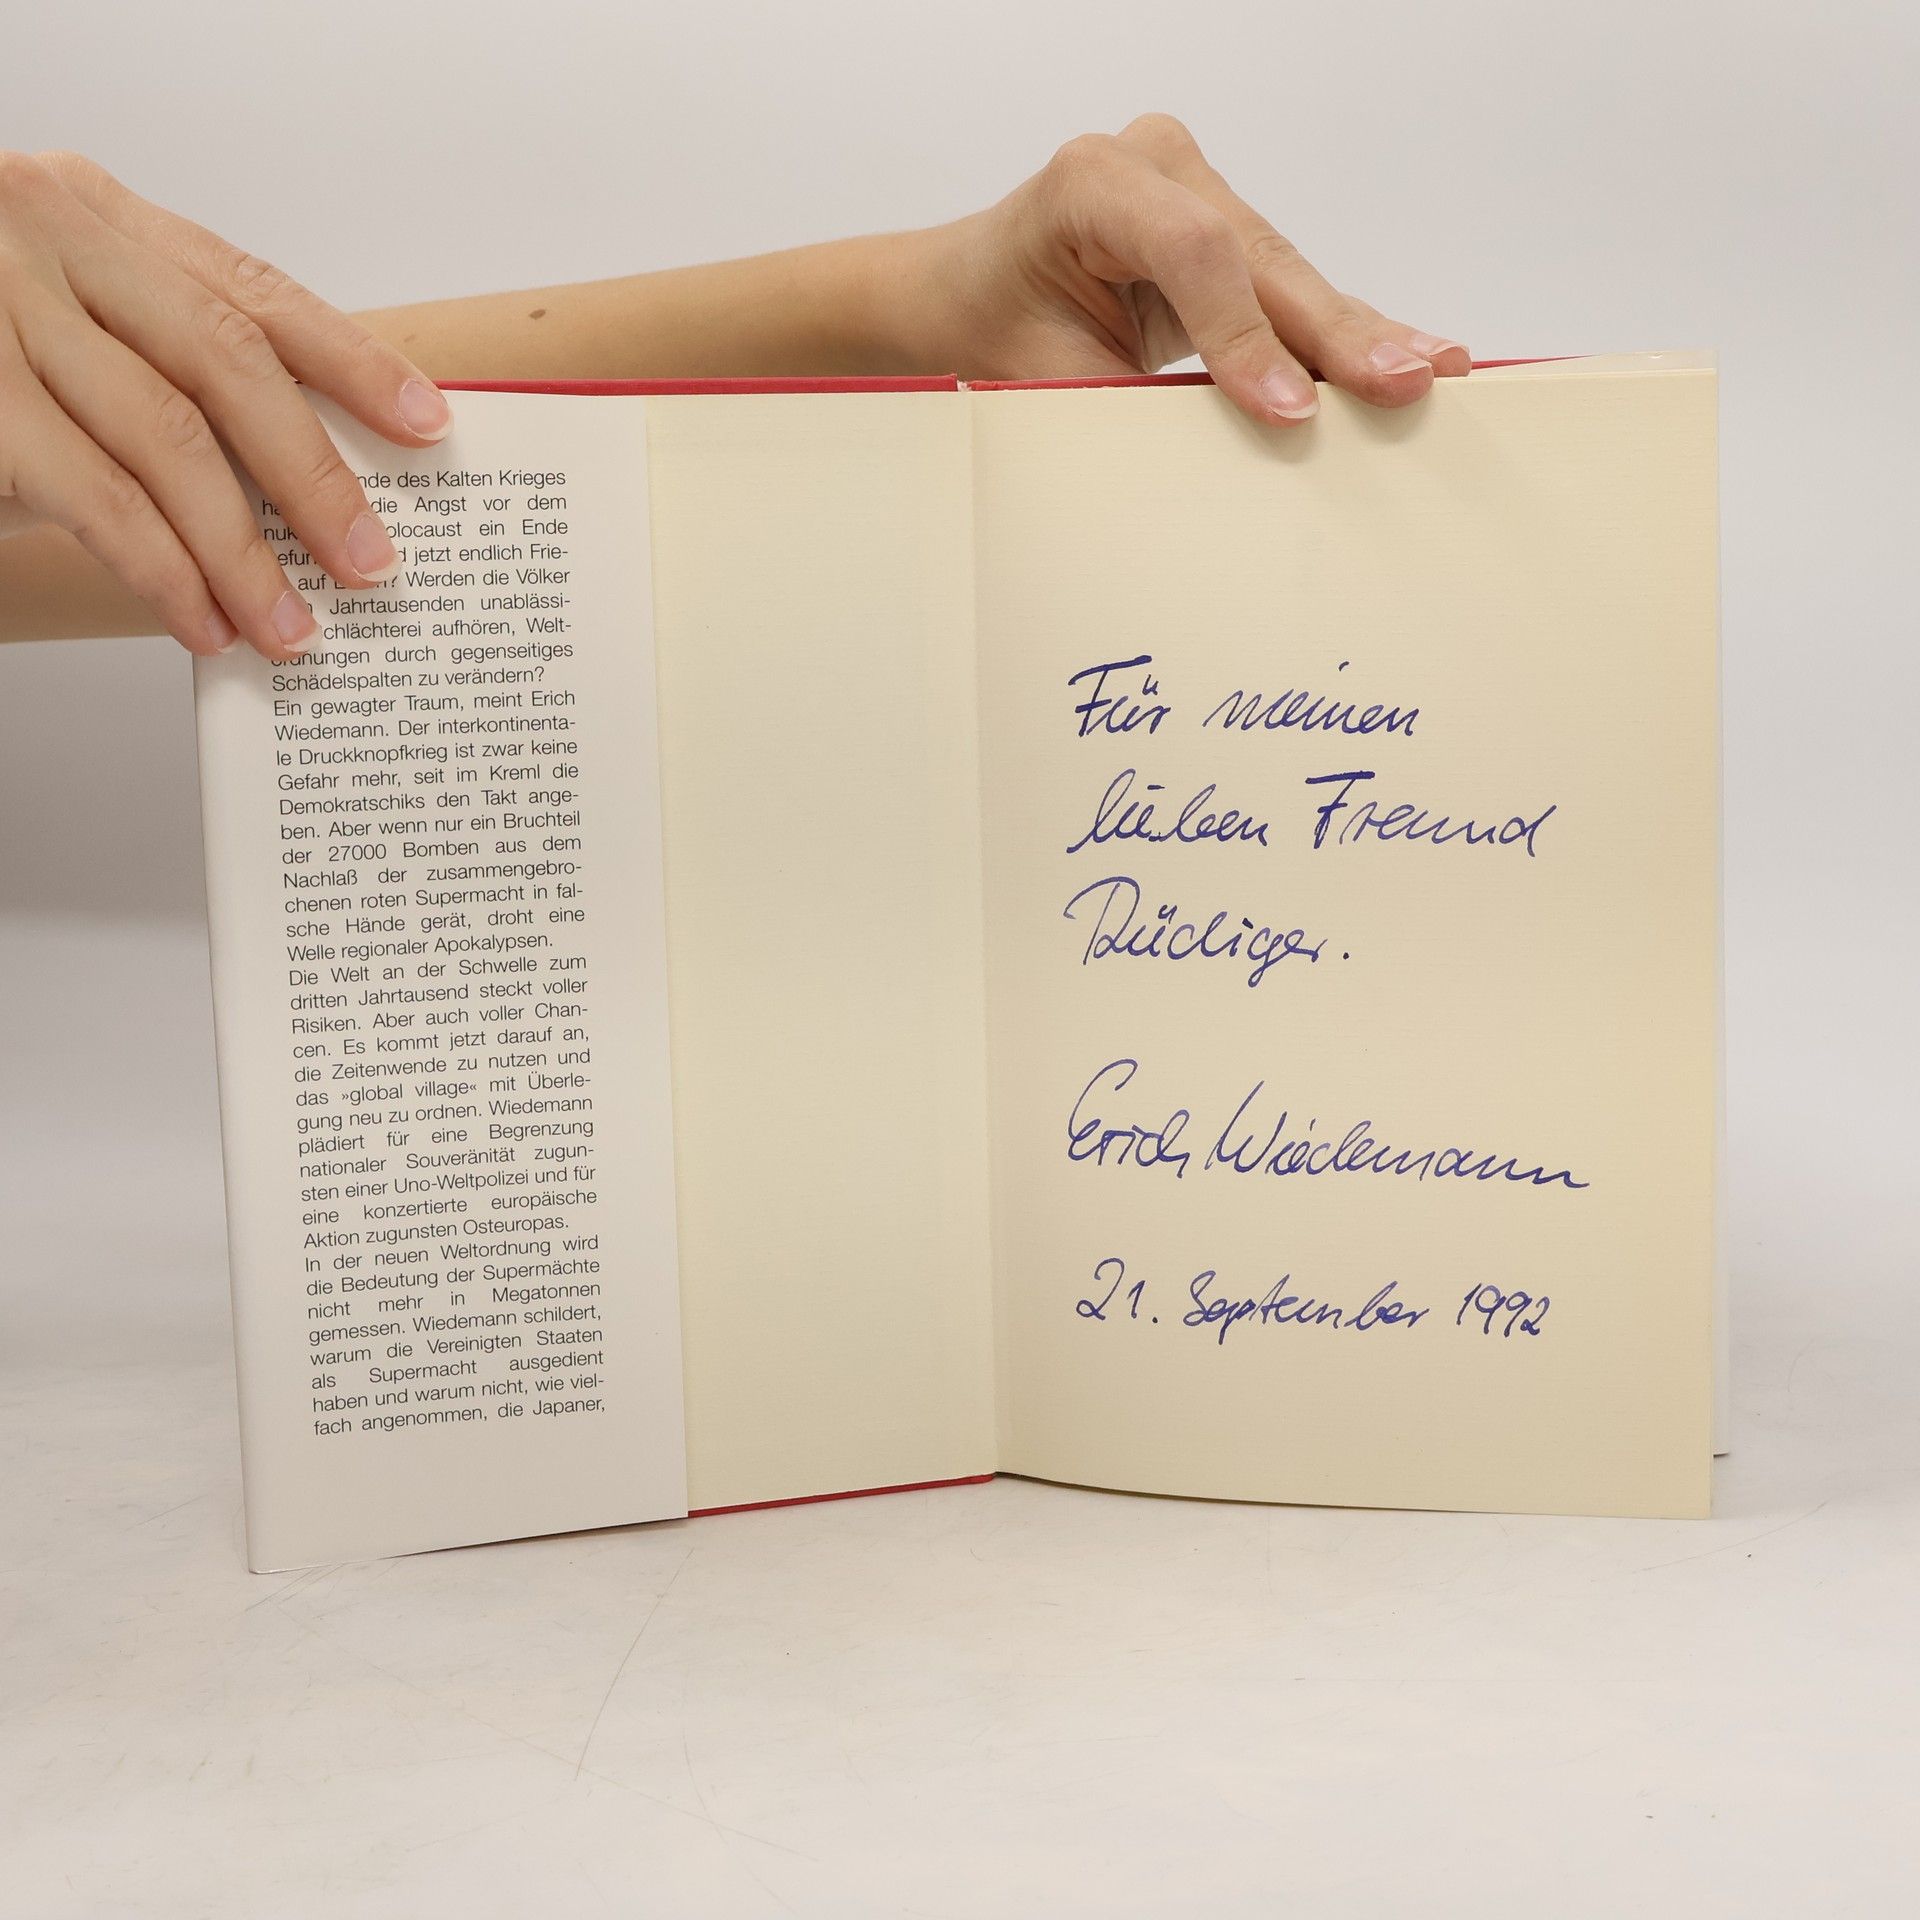 nde des Kalten Krieges
die Angst vor dem
nuk olocaust ein Ende
jetzt endlich Frie-
auf Werden die Völker
Jahrtausenden unablässi-
chlächterei aufhören, Welt-
ordnungen durch gegenseitiges
Schädelspalten zu verändern?
Ein gewagter Traum, meint Erich
Wiedemann. Der interkontinenta-
le Druckknopfkrieg ist zwar keine
Gefahr mehr, seit im Kreml die
Demokratschiks den Takt ange-
ben. Aber wenn nur ein Bruchteil
der 27000 Bomben aus dem
Nachlaß der zusammengebro-
chenen roten Supermacht in fal-
sche Hände gerät, droht eine
Welle regionaler Apokalypsen.
Die Welt an der Schwelle zum
dritten Jahrtausend steckt voller
Risiken. Aber auch voller Chan-
cen. Es kommt jetzt darauf an,
die Zeitenwende zu nutzen und
das »global village« mit Überle-
gung neu zu ordnen. Wiedemann
plädiert für eine Begrenzung
nationaler Souveränität zugun-
sten einer Uno-Weltpolizei und für
eine konzertierte europäische
Aktion zugunsten Osteuropas.
In der neuen Weltordnung wird
die Bedeutung der Supermächte
nicht mehr in Megatonnen
gemessen. Wiedemann schildert,
warum die Vereinigten Staaten
als Supermacht ausgedient
haben und warum nicht, wie viel-
fach angenommen, die Japaner,
Für meinen
lieben Freund
Rüdiger.
Erich Wiedemann
21. September 1992